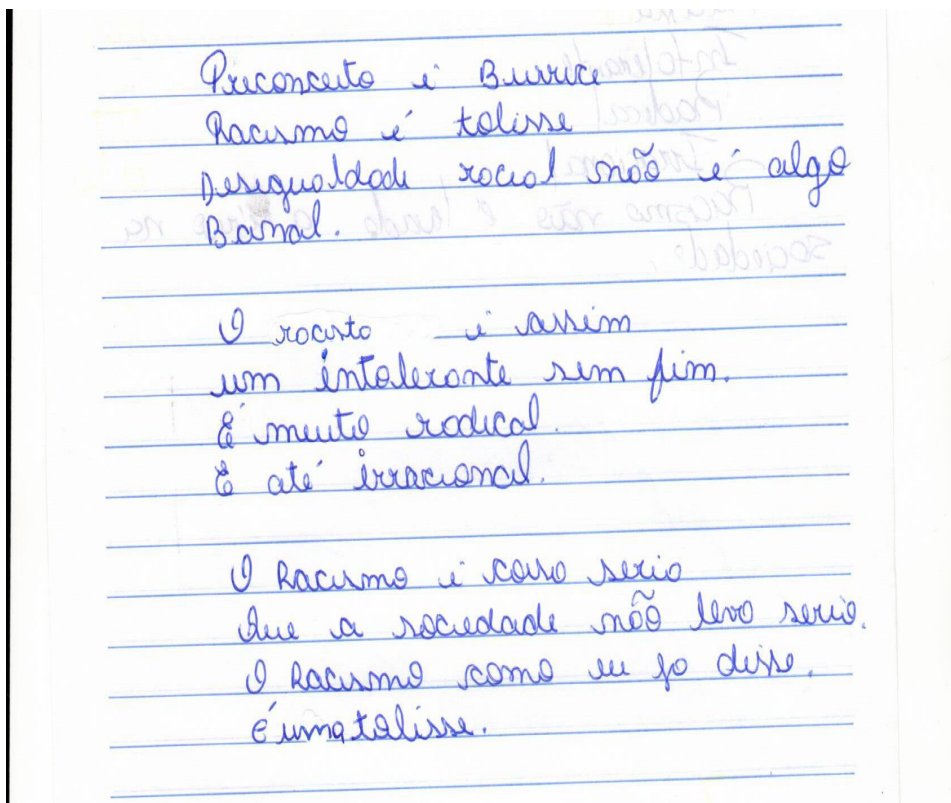 Preconceito é Burrice
Racismo é tolisse
Desigualdade racial não é algo
Banal.
O racista é assim
um intolerante sem fim.
É muito radical.
E até irracional.
O Racismo é caso serio
Que a sociedade não leva serio.
O Racismo como eu ja disse.
É uma tolisse.